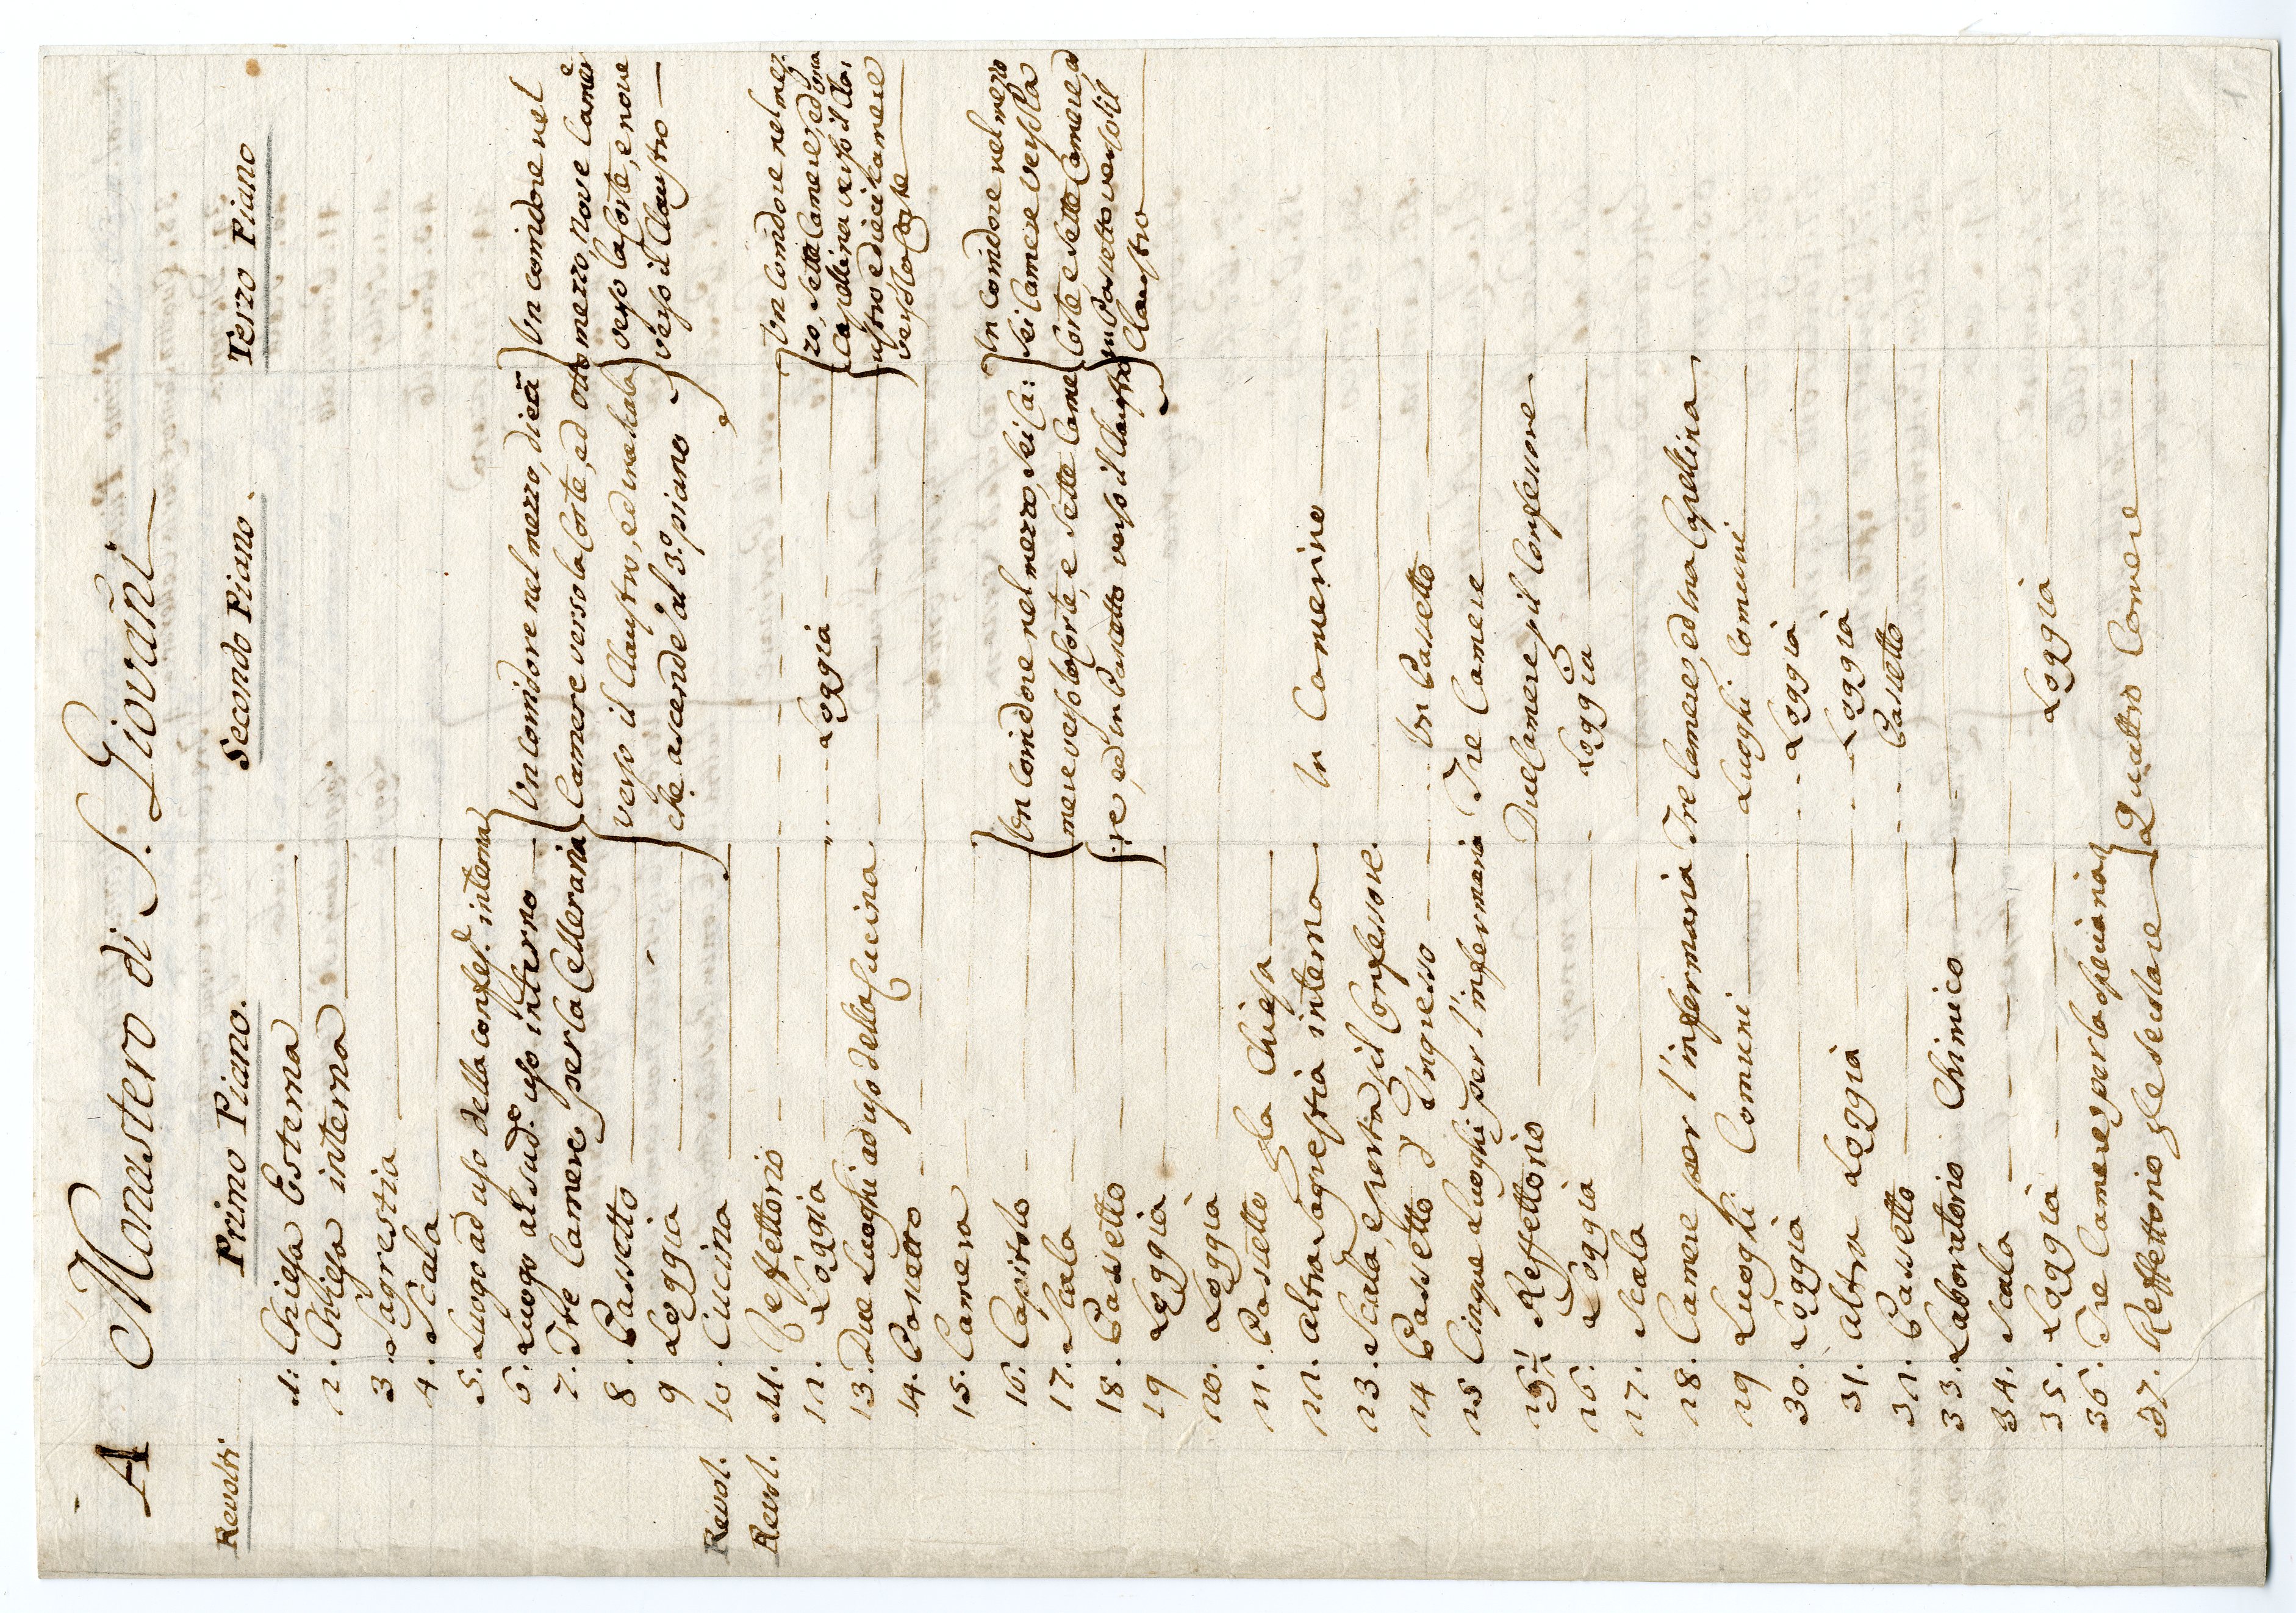 A Monastero di S. Giovañi
Revolti Primo Piano. Secondo Piano. Terzo Piano
1. Chiesa Esterna
2. Chiesa interna
3. Sagrestia
4. Scala
5. Luogo ad uso della confes.e interna
6. Luogo al sud.o uso interno
7. Tre Camere per la Celleraria
Un corridore nel mezzo, dieci
Camere verso la Corte, ed otto
verso il Claustro, ed una scala
che ascende al 3.o piano
Un corridore nel
mezzo, nove Camere
verso la Corte, e nove
verso il Claustro
8. Passetto
9 Loggia
Revol. 10. Cucina
Revol. 11. Reffettorio
12. Loggia Loggia
13. Due Luoghi ad uso della Cucina
Un Corridore nel mez:
zo, sette Camere, ed una
Capellina verso il Cla:
ustro e dieci Camere
verso la Corte
14. Passetto
15. Camera
16. Capitolo
17. Scala
18. Passetto
Un Corridore nel mezzo, sei Ca:
mere verso la Corte, e sette Came
re, ed un Passetto verso il Claustro
Un Corridore nel mezzo
sei Camere verso la
Corte e sette Camere, ed
un Passetto verso il
Claustro
19 Loggia
20. Loggia
21. Passetto p la Chiesa
22. altra Sagrestia interna Un Camerino
23. Scala, e porta p il Confessore.
24 Passetto d'Ingresso Un Passetto
25 Cinque Luoghi per l'infermaria Tre Camere
25 1/2 Reffettorio Due Camere p il Confessore
26. Loggia Loggia
27. Scala
28. Camere per l'infermaria Tre Camere, ed una Capellina
29 Luoghi Comuni Luoghi comuni
30. Loggia Loggia
31. altra Loggia Loggia
32. Passetto Passetto
33. Laboratorio Chimico
34. Scala
35. Loggia Loggia
36. Tre Camere per la speciaria
37. Reffettorio p le secolare Quattro Camere
1